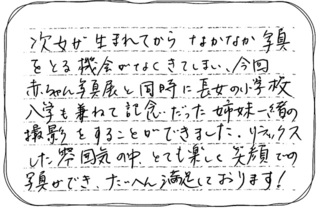 次女が生まれてから なかなか写真
をとる機会がなくきてしまい、今回
赤ちゃん写真展と同時に長女の小学校
入学も兼ねて記念だった姉妹一緒の
撮影をすることができました。リラックス
した雰囲気の中、とても楽しく笑顔での
写真ができ、たいへん満足しております！